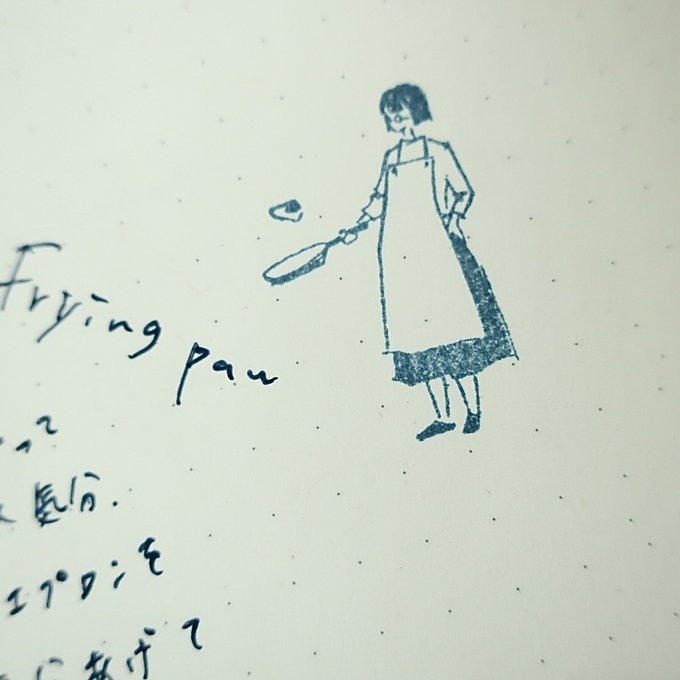 Frying pan
って
気分.
エプロンを
にあげて